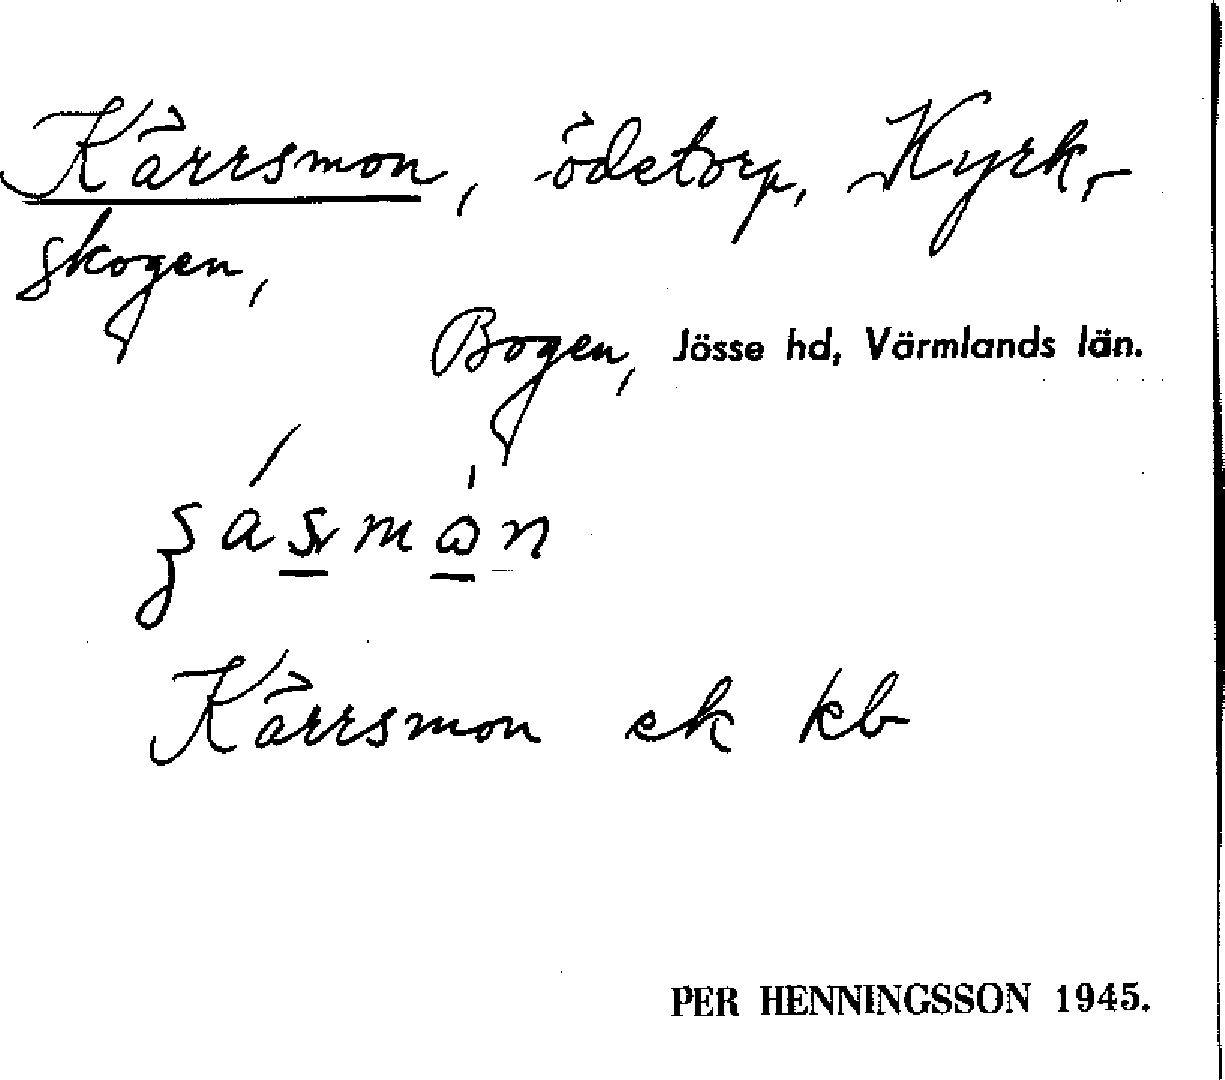 Kärrsmon, ödetorp, Kyrk-
skogen,
Bogen, Jösse hd, Värmlands län.
Kärrsmon ek kb
PER HENNINGSSON 1945.